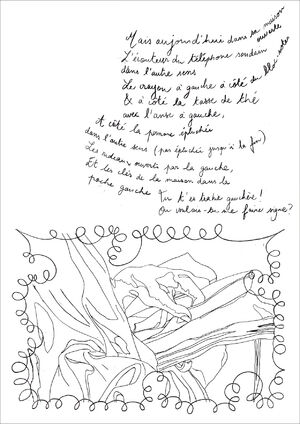 Mais aujourd'hui dans sa maison ouverte
L'écouteur du téléphone soudain
dans l'autre sens
Le crayon à gauche à côté du bloc notes
& à côté la tasse de thé
avec l'anse à gauche,
A côté la pomme épluchée
dans l'autre sens (pas épluchée jusqu'à la fin)
Les rideaux ouverts par la gauche,
Et les clés de la maison dans la
poche gauche Tu t'es trahie gauchère!
Ou voulais-tu me faire signe?